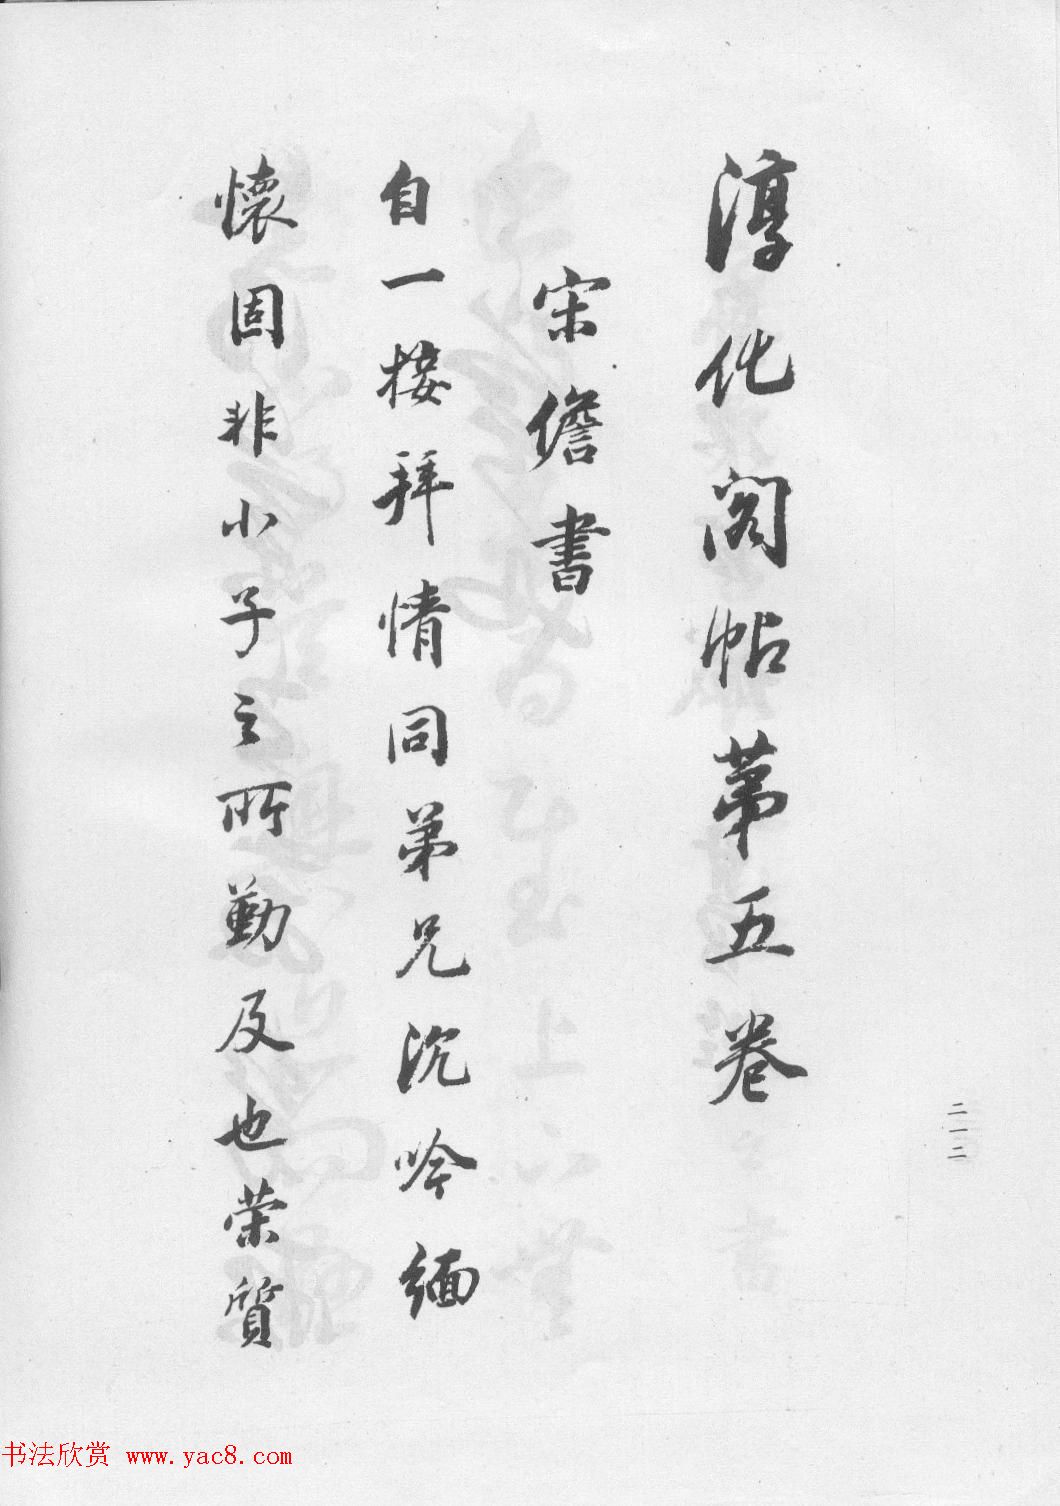 淳化閣帖苐五卷
宋儋書
自一接拜情同弟兄沉吟緬
懷固非小子之所勤及也荣質
二一二
书法欣赏 www.yac8.com